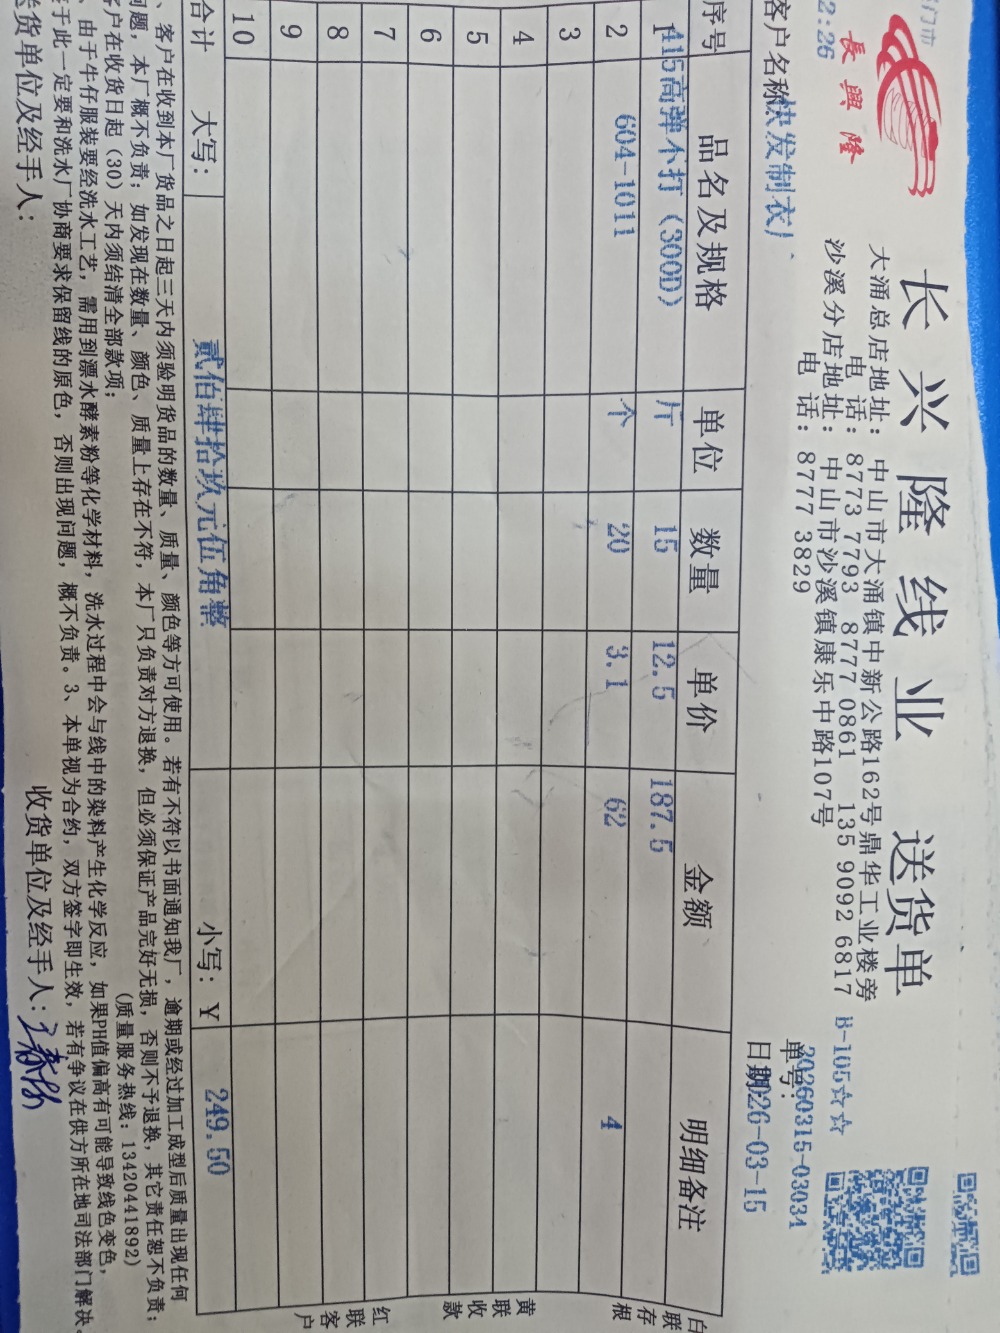 长兴隆线业 送货单
長興隆
门市
2:26
大涌总店地址：中山市大涌镇中新公路162号鼎华工业楼旁
电 话：8773 7793 8777 0861 135 9092 6817
沙溪分店地址：中山市沙溪镇康乐中路107号
电 话：8777 3829
B-105☆☆
单号：20260315-03034
客户名称 快发制衣厂
日期 2026-03-15
序号 品名及规格 单位 数量 单价 金额 明细备注
1 415高弹不打（300D） 斤 15 12.5 187.5
2 604-1011 个 20 3.1 62 4
3
4
5
6
7
8
9
10
合计 大写： 贰佰肆拾玖元伍角整 小写：￥ 249.50
、客户在收到本厂货品之日起三天内须验明货品的数量、质量、颜色等方可使用。若有不符以书面通知我厂，逾期或经过加工成型后质量出现任何
问题，本厂概不负责；如发现在数量、颜色、质量上存在不符，本厂只负责对方退换，但必须保证产品完好无损，否则不予退换，其它责任恕不负责；
客户在收货日起（30）天内须结清全部款项；
（质量服务热线：13420441892）
、由于牛仔服装要经洗水工艺，需用到漂水酵素粉等化学材料，洗水过程中会与线中的染料产生化学反应，如果PH值偏高有可能导致线色变色，
鉴于此一定要和洗水厂协商要求保留线的原色，否则出现问题，概不负责。3、本单视为合约，双方签字即生效，若有争议在供方所在地司法部门解决。
送货单位及经手人：
收货单位及经手人：
白联存根
黄联收款
红联客户